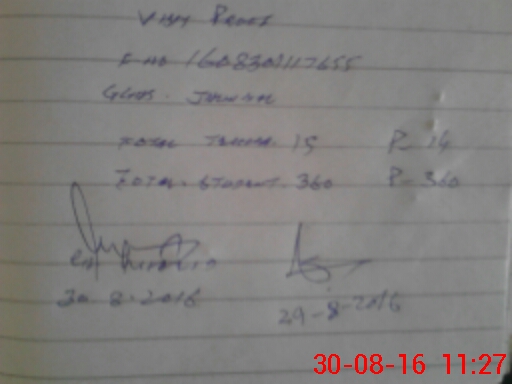 Visit Proof
F-NO 1608301117655
GGHS. 
TOTAL TEACHER. 15 P- 14
TOTAL. STUDENT. 360 P- 360
30.8.2016
29-8-2016
30-08-16 11:27